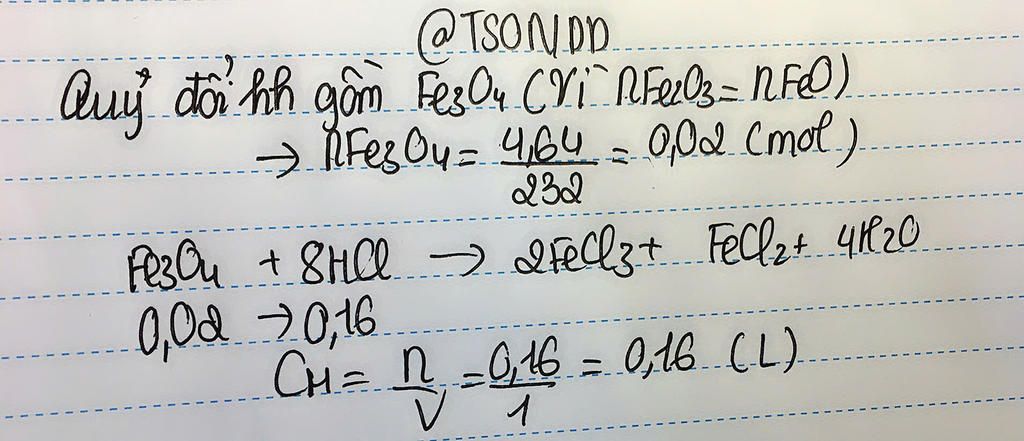 @TSONDD
Quy đổi hh gồm Fe3O4 (Vì nFe2O3 = nFeO)
→ nFe3O4 = 4,64/232 = 0,02 (mol)
Fe3O4 + 8HCl → 2FeCl3 + FeCl2 + 4H2O
0,02 → 0,16
CM = n/V = 0,16/1 = 0,16 (L)